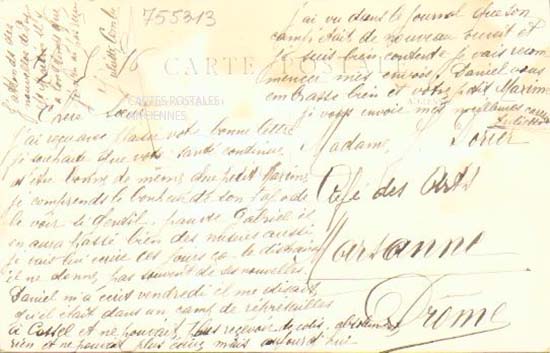 755313
CARTE POSTALE
CARTES POSTALES
ANCIENNES
Chère Sœur
J'ai reçu avec plaisir votre bonne lettre
je souhaite que votre santé continue
d'être bonne de même que petit Maxime
je comprends le bonheur de son Papa de
le voir si gentil. pauvre Gabriel il
en aura passé bien des misères aussi
je vais lui écrire ces jours ça le distraira
il ne donne pas souvent de ses nouvelles.
Daniel m'a écrit vendredi il me disait
qu'il était dans un camp de représailles
à Cassel et ne pouvait plus recevoir de colis, absolument
rien et ne pouvait plus écrire mais aujourd'hui
J'ai vu dans le journal que son
camp était de nouveau ouvert et
je suis bien contente je vais recom
mencer mes envois. Daniel vous
embrasse bien et votre petit Maxime
je vous envoie mes meilleures
Juliette
Madame
Café des Arts
Marsanne
Drôme